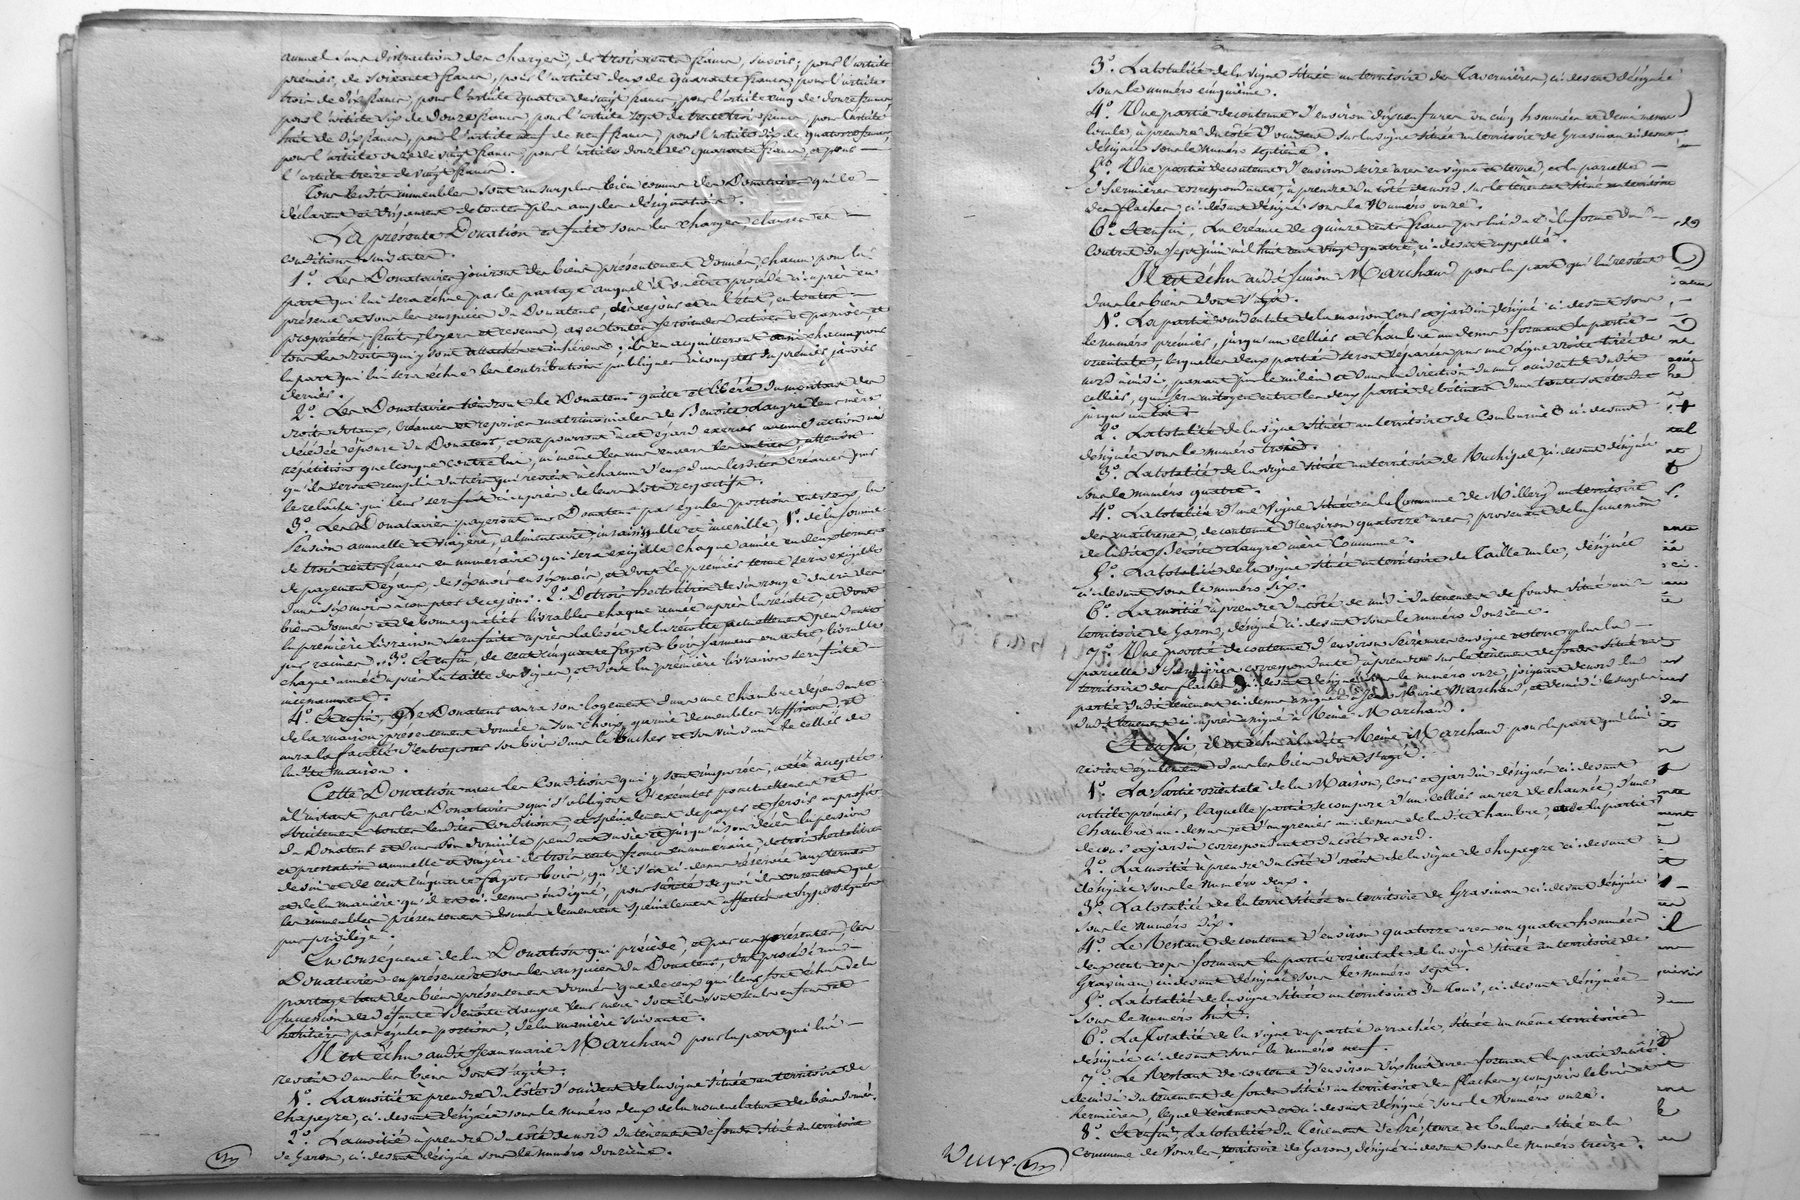 annuel sans distraction des charges, de trois cents francs, savoir; pour l'article
premier, de soixante francs, pour l'article deux de quarante francs, pour l'article
trois de dix francs, pour l'article quatre de vingt francs, pour l'article cinq de douze francs,
pour l'article six de douze francs, pour l'article sept de trente trois francs, pour l'article
huit de dix francs, pour l'article neuf de neuf francs, pour l'article dix de quatorze francs,
pour l'article onze de vingt francs, pour l'article douze de quarante francs, et pour
l'article treize de vingt francs.
Tous lesdits immeubles sont au surplus bien connus des Donataires qui le
déclarent et dispensent de toutes plus amples désignations.
La présente Donation est faite sous les charges, clauses et
conditions suivantes.
1° Les Donataires jouiront des biens présentement donnés, chacun pour la
part qui lui sera échue par le partage auquel il va être procédé ci-après en
présence et sous les auspices du Donateur, dès ce jour et en l'état, en toutes
propriétés, fruits, loyers et revenus, avec toutes servitudes actives et passives, et
tous les droits qui y sont attachés et inhérents; ils en acquitteront aussi chacun pour
la part qui lui sera échue les contributions publiques à compter du premier janvier
dernier.
2° Les Donataires tiendront le Donateur quitte et libéré du montant des
droits dotaux, créances et reprises matrimoniales de Benoite Daugre leur mère
décédée épouse du Donateur, et ne pourront à cet égard exercer aucune action ni
répétition quelconque contre lui, ni même les uns envers les autres, attendu
qu'ils seront remplis du tiers qui revient à chacun d'eux dans lesdites créances par
le relâche qui leur sera fait ci-après de leurs lots respectifs.
3° Les Donataires payeront au Donateur par égales portions entr'eux, la
Pension annuelle et viagère, alimentaire, insaisissable et incessible, 1° de la somme
de trois cents francs en numéraire qui sera exigible chaque année en deux termes
de payement égaux, de six mois en six mois, et dont le premier terme sera exigible
dans six mois à compter de ce jour. 2° De trois hectolitres de vin rouge du crû des
biens donnés et de bonne qualité livrables chaque année après la récolte, et dont
la première livraison sera faite après la levée de la récolte actuellement pendante
par racines. 3° Et enfin, de cent cinquante fagots bois sarment ou autre, livrables
chaque année après la taille des vignes, et dont la première livraison sera faite
incessamment.
4° Et enfin, Le Donateur aura son logement dans une chambre dépendante
de la maison présentement donnée à son choix, garnie de meubles suffisants, et
aura la faculté d'entreposer son bois dans le bucher et son vin dans le cellier de
ladite maison.
Cette Donation avec les Conditions qui y sont imposées, a été acceptée
à l'instant par les Donataires qui s'obligent d'exécuter ponctuellement et
strictement toutes lesdites Conditions et spécialement de payer et servir au profit
du Donateur et dans son domicile pendant sa vie et jusqu'à son décès la pension
et prestation annuelle et viagère de trois cents francs en numéraire, de trois hectolitres
de vin et de cent cinquante fagots bois, qu'il s'est ci-dessus réservée aux termes
et de la manière qu'il est ci-dessus indiqué, pour sûreté de quoi ils consentent que
les immeubles présentement donnés demeurent spécialement affectés et hypothéqués
par privilège.
En conséquence de la Donation qui précède, et par ces présentes, les
Donataires en présence et sous les auspices du Donateur, ont procédé au
partage tant des biens présentement donnés que de ceux qui leur sont échus de la
succession de défunte Benoite Daugre leur mère dont ils sont seuls enfans et
héritiers par égales portions, de la manière suivante.
Il est échu audit Jean marie Marchand pour la part qui lui
revient dans les biens dont s'agit.
1° La moitié à prendre du côté d'occident de la vigne située au territoire de
Chapeyre, ci-devant désignée sous le numéro deux de la nomenclature des biens donnés.
2° La moitié à prendre du côté de nord du tènement de fonds situé au territoire
de Garon, ci-devant désigné sous le numéro douzième.
3° La totalité de la vigne située au territoire des Tavernières, ci-devant désignée
sous le numéro cinquième.
4° Une partie de contenue d'environ dix neuf ares ou cinq hommées et demie mesure
locale, à prendre du côté d'occident sur la vigne située au territoire de Gravinan ci-devant
désignée sous le numéro septième.
5° Une partie de contenue d'environ seize ares en vigne et terre, et la parcelle
d'hermières correspondante, à prendre du côté de nord sur le tènement situé au territoire
des flaches, ci-devant désigné sous le Numéro onze.
6° Et enfin, La Créance de quinze cents francs par lui due à la forme du
Contrat du sept juin mil huit cent vingt quatre, ci-devant rappellé.
Il est échu audit Simon Marchand pour la part qui lui revient
dans les biens dont s'agit.
1° La partie occidentale de la maison, cour et jardin désignés ci-devant sous
le numéro premier, jusqu'au cellier et chambre au dessus formant la partie
orientale, lesquelles deux parties seront séparées par une ligne droite tirée de
nord à midi, passant par le milieu et dans la direction du mur occidental dudit
cellier, qui sera mitoyen entre les deux parties de bâtiment dans toute son étendue
jusqu'au toit.
2° La totalité de la vigne située au territoire de Comburiné ci-devant
désignée sous le numéro trois.
3° La totalité de la vigne située au territoire de Ruchipel, ci-devant désignée
sous le numéro quatre.
4° La totalité d'une vigne située en la Commune de Millery au territoire
des maitresses, de contenue d'environ quatorze ares, provenant de la succession
de ladite Benoite Daugre mère Commune.
5° La totalité de la vigne située au territoire de Taille mule, désignée
ci-devant sous le numéro six.
6° La moitié à prendre du côté de midi du tènement de fonds situé au
territoire de Garon, désigné ci-devant sous le numéro douzième.
7° Une partie de contenue d'environ seize ares en vigne et terre, plus la
parcelle d'hermières correspondante, à prendre sur le tènement de fonds situé au
territoire des flaches ci-devant désigné sous le numéro onze, joignant de nord la
partie dudit tènement ci-dessus assignée à Jean Marie Marchand, et de midi le surplus
dudit tènement ci-après assigné à Reine Marchand.
Et enfin il est échu à ladite Reine Marchand pour la part qui lui
revient également dans les biens dont s'agit.
1° La Partie orientale de la Maison, Cour et jardin désignés ci-devant
article premier, laquelle partie se compose d'un cellier au rez de chaussée, d'une
Chambre au dessus, et d'un grenier au dessus de ladite chambre, et de la partie
de cour et jardin correspondante du côté de nord.
2° La moitié à prendre du côté d'orient de la vigne de chapeyre ci-devant
désignée sous le numéro deux.
3° La totalité de la terre située au territoire de Gravinan ci-devant désignée
sous le numéro dix.
4° Le Restant de contenue d'environ quatorze ares ou quatre hommées
formant la partie orientale de la vigne située au territoire de
Gravinan, ci-devant désignée sous le numéro sept.
5° La totalité de la vigne située au territoire du Four, ci-devant désignée
sous le numéro huit.
6° La Totalité de la vigne en partie arrachée, située au même territoire
désignée ci-devant sous le numéro neuf.
7° Le Restant de contenue d'environ dix huit ares formant la partie du côté
de midi du tènement de fonds situé au territoire des flaches y compris le bois et
hermières, lequel tènement est ci-devant désigné sous le Numéro onze.
8° Et enfin, La totalité du tènement de
Commune de Vourles, territoire de Garon, désigné ci-devant sous le numéro treize.
Deux.